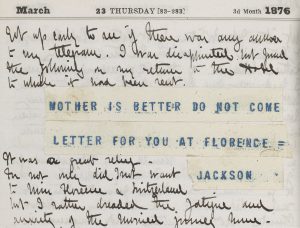 March 23 THURSDAY [83-283] 3d Month 1876
Got up early to see if there was any answer
to my telegram. I was disappointed but found
the following on my return to the Hotel
to which it had been sent.
MOTHER IS BETTER DO NOT COME
LETTER FOR YOU AT FLORENCE =
JACKSON
It was a great relief -
For not only did I not want
to miss Florence & Switzerland
but I rather dreaded the fatigue and
anxiety of the hurried journey home -